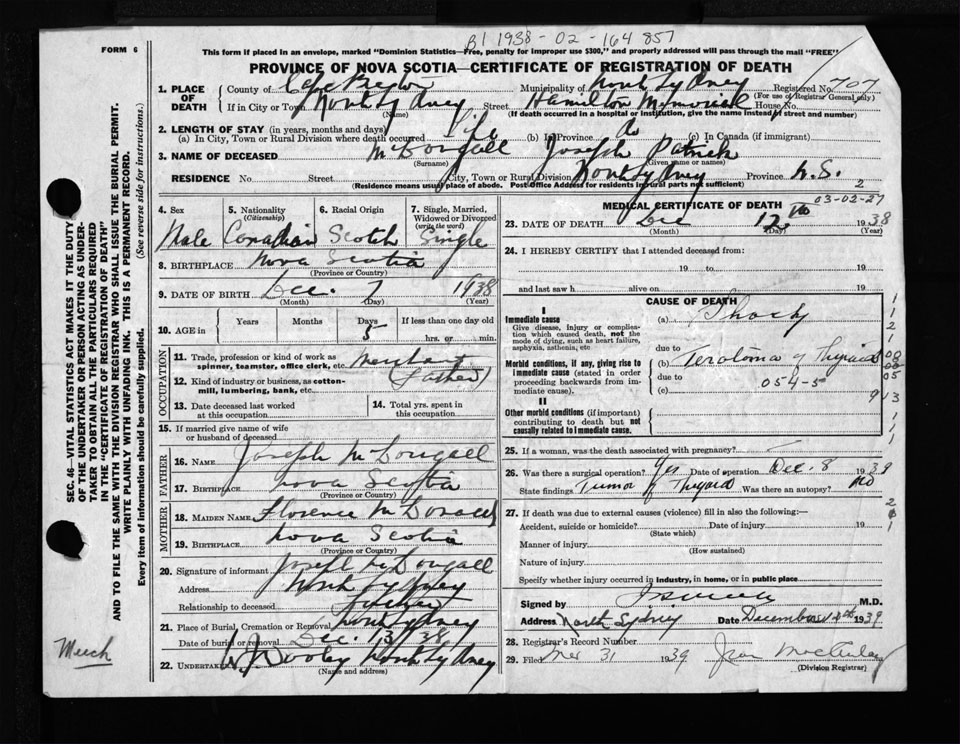 B1 1938-02-164857
FORM 6
This form if placed in an envelope, marked "Dominion Statistics—Free, penalty for improper use $300," and properly addressed will pass through the mail "FREE"
PROVINCE OF NOVA SCOTIA—CERTIFICATE OF REGISTRATION OF DEATH
1. PLACE OF DEATH County of Cape Breton Municipality of North Sydney Registered No. 707
(For use of Registrar General only)
If in City or Town North Sydney Street Hamilton Memorial House No.
(Name) (If death occurred in a hospital or institution, give the name instead of street and number)
2. LENGTH OF STAY (in years, months and days)
(a) In City, Town or Rural Division where death occurred Life (b) In Province (c) In Canada (if immigrant)
3. NAME OF DECEASED McDougall Joseph Patrick
(Surname) (Given name or names)
RESIDENCE No. Street City, Town or Rural Division North Sydney Province N.S.
(Residence means usual place of abode. Post Office Address for residents in rural parts not sufficient) 2
SEC. 46—VITAL STATISTICS ACT MAKES IT THE DUTY
OF THE UNDERTAKER OR PERSON ACTING AS UNDER-
TAKER TO OBTAIN ALL THE PARTICULARS REQUIRED
IN THE "CERTIFICATE OF REGISTRATION OF DEATH"
AND TO FILE THE SAME WITH THE DIVISION REGISTRAR WHO SHALL ISSUE THE BURIAL PERMIT.
WRITE PLAINLY WITH UNFADING INK. THIS IS A PERMANENT RECORD.
Every item of information should be carefully supplied. (See reverse side for instructions.)
4. Sex Male
5. Nationality (Citizenship) Canadian
6. Racial Origin Scotch
7. Single, Married, Widowed or Divorced (write the word) Single
8. BIRTHPLACE Nova Scotia
(Province or Country)
9. DATE OF BIRTH Dec. 7 1938
(Month) (Day) (Year)
10. AGE in Years Months Days 5 If less than one day old hrs. or min.
OCCUPATION
11. Trade, profession or kind of work as spinner, teamster, office clerk, etc. Merchant
12. Kind of industry or business, as cotton-mill, lumbering, bank, etc. (Father)
13. Date deceased last worked at this occupation
14. Total yrs. spent in this occupation
15. If married give name of wife or husband of deceased
FATHER
16. NAME Joseph McDougall
17. BIRTHPLACE Nova Scotia
(Province or Country)
MOTHER
18. MAIDEN NAME Florence McDonald
19. BIRTHPLACE Nova Scotia
(Province or Country)
20. Signature of informant Joseph McDougall
Address North Sydney
Relationship to deceased father
21. Place of Burial, Cremation or Removal North Sydney
Date of burial or removal Dec. 13 / 38
22. UNDERTAKER W. J. Dooley North Sydney
(Name and address)
MEDICAL CERTIFICATE OF DEATH 03-02-27
23. DATE OF DEATH Dec 12th 1938
(Month) (Day) (Year)
24. I HEREBY CERTIFY that I attended deceased from:
19 to 19
and last saw h alive on 19
CAUSE OF DEATH
I
Immediate cause (a) Shock
Give disease, injury or complication which caused death, not the mode of dying, such as heart failure, asphyxia, asthenia, etc.
due to
(b) Teratoma of Thyroid
Morbid conditions, if any, giving rise to immediate cause (stated in order proceeding backwards from immediate cause).
due to 054-5
(c)
II
Other morbid conditions (if important) contributing to death but not causally related to immediate cause.
25. If a woman, was the death associated with pregnancy?
26. Was there a surgical operation? Yes Date of operation Dec. 8 1939
State findings Tumor of Thyroid Was there an autopsy? No
27. If death was due to external causes (violence) fill in also the following:—
Accident, suicide or homicide? Date of injury 19
(State which)
Manner of injury
(How sustained)
Nature of injury
Specify whether injury occurred in industry, in home, or in public place
Signed by M.D.
Address North Sydney Date December 1939
28. Registrar's Record Number
29. Filed 31 1939 Jean
(Division Registrar)
Meech